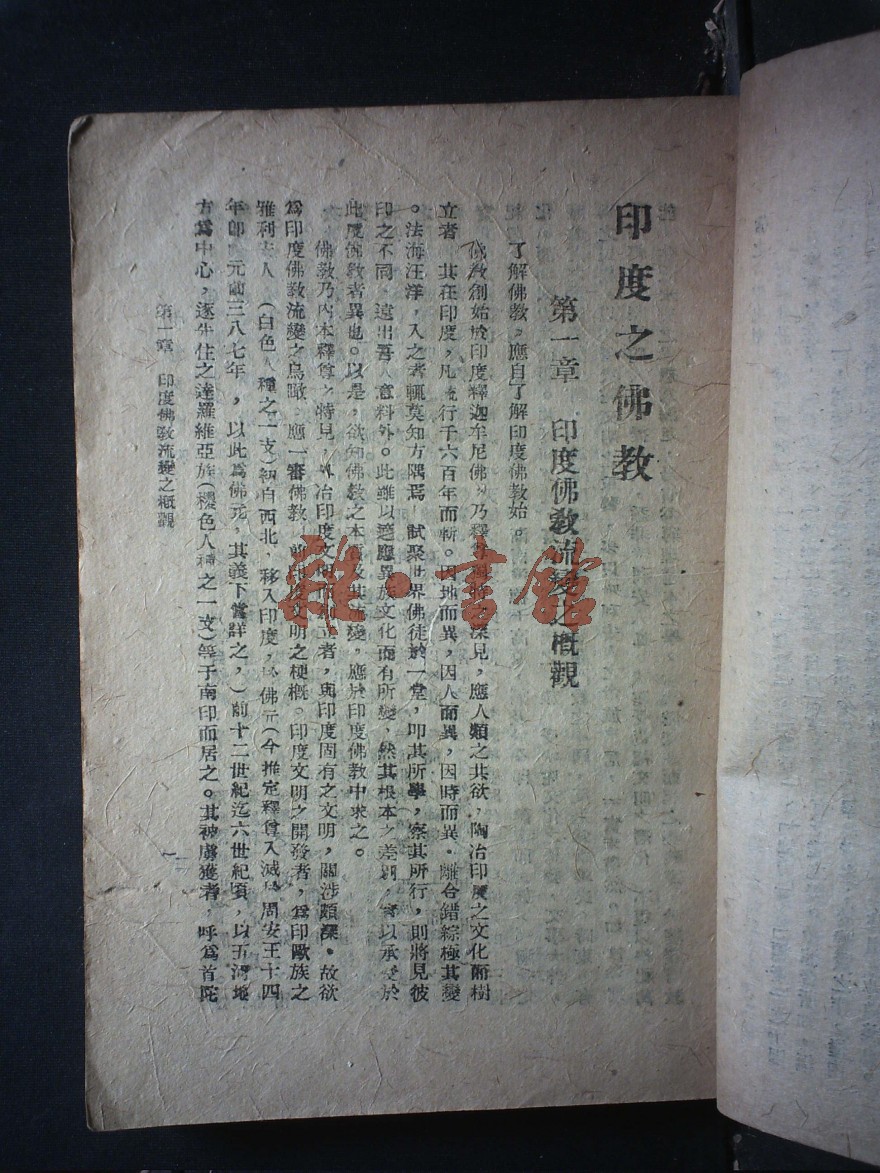 印度之佛教
第一章 印度佛教流變之概觀
了解佛教,應自了解印度佛教始。
佛教創始於印度釋迦牟尼佛,乃釋尊 深見,應人類之共欲,陶冶印度之文化而樹
立者 其在印度,凡流行千六百年而斬。因地而異,因人而異,因時而異。離合錯綜極其變
。法海汪洋,入之者輒莫知方隅焉!試聚世界佛徒於一堂,叩其所學,察其所行,則將見彼
印之不同,遠出吾人意料外。此雖以適應異族文化而有所變,然其根本之差別,實以承受於
此度佛教者異也。以是,欲知佛教之本質及其流變,應於印度佛教中求之。
佛教乃內本釋尊之特見,外冶印度文明而創立者,與印度固有之文明,關涉頗深。故欲
爲印度佛教流變之鳥瞰,應一審佛教 前印度文明之梗概。印度文明之開發者,爲印歐族之
雅利安人 (白色人種之一支)初自西北,移入印度,於佛元(今推定釋尊入滅於周安王十四
年即 元前三八七年,以此爲佛元,其義下當詳之,)前十二世紀迄六世紀頃,以五河地
方爲中心,逐先住之達羅維亞族(棕色人種之一支)等于南印而居之。其被虜獲者,呼爲首陀
第一章 印度佛教流變之概觀
一
雜·書館